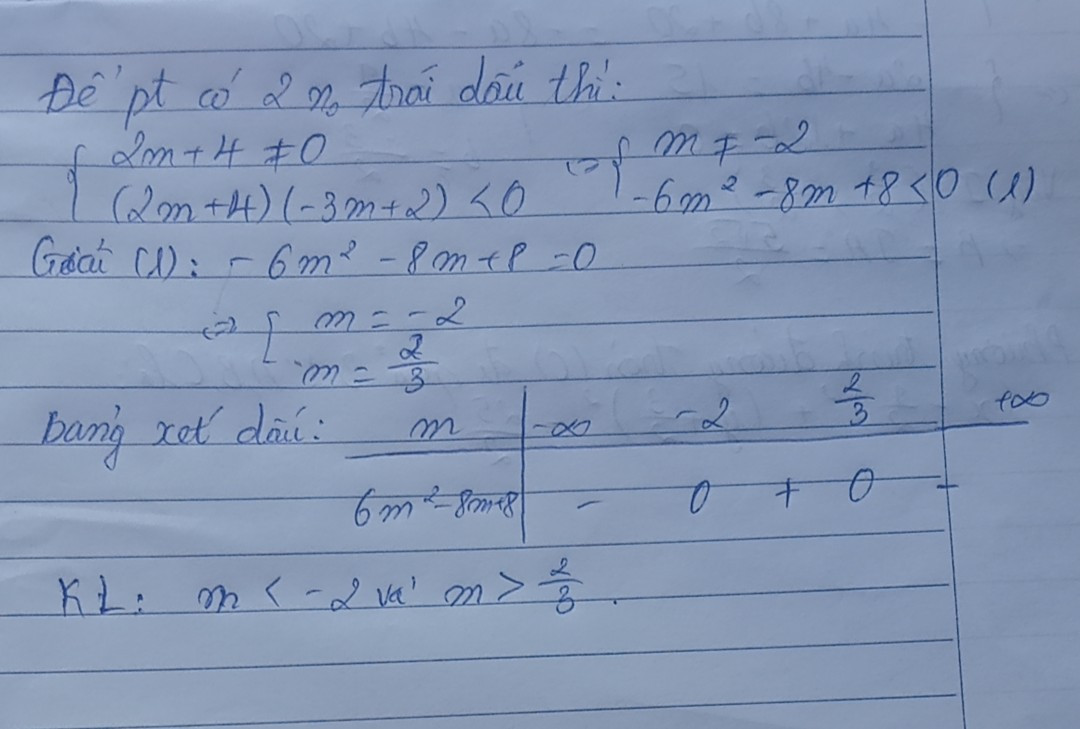 Để pt có 2 n₀ trái dấu thì:
{ 2m + 4 ≠ 0 <=> { m ≠ -2
(2m+4)(-3m+2) < 0 -6m² - 8m + 8 < 0 (1)
Giải (1): - 6m² - 8m + 8 = 0
<=> [ m = -2
m = 2/3
bảng xét dấu: m | -∞ -2 2/3 +∞
6m² - 8m+8 | - 0 + 0 -
KL: m < -2 và m > 2/3.